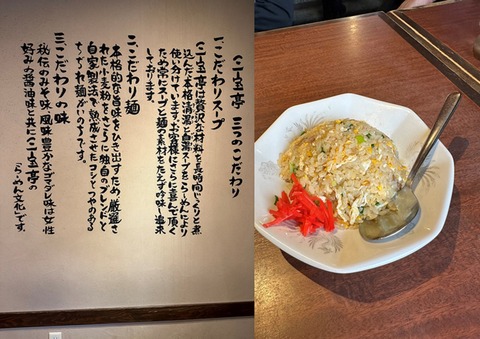 三宝亭 三つのこだわり
一こだわりスープ
三宝亭は贅沢な材料を長時間じっくりと煮
込んだ本格清湯と白湯スープをらーめんにより
使い分けています。お客様にさらに喜んで頂く
ため常にスープと麺の素材をたえず吟味し追求
しております。
二こだわり麺
本格的な旨味をひき出すため、厳選さ
れた小麦粉をさらに独自のブレンドと
自家製法で熟成させたコシとつやのある
ちぢれ麺がいのちです。
三こだわりの味
秘伝のみそ味、風味豊かなゴマダレ味は女性
好みの醤油味と共に三宝亭の
「らーめん文化」です。